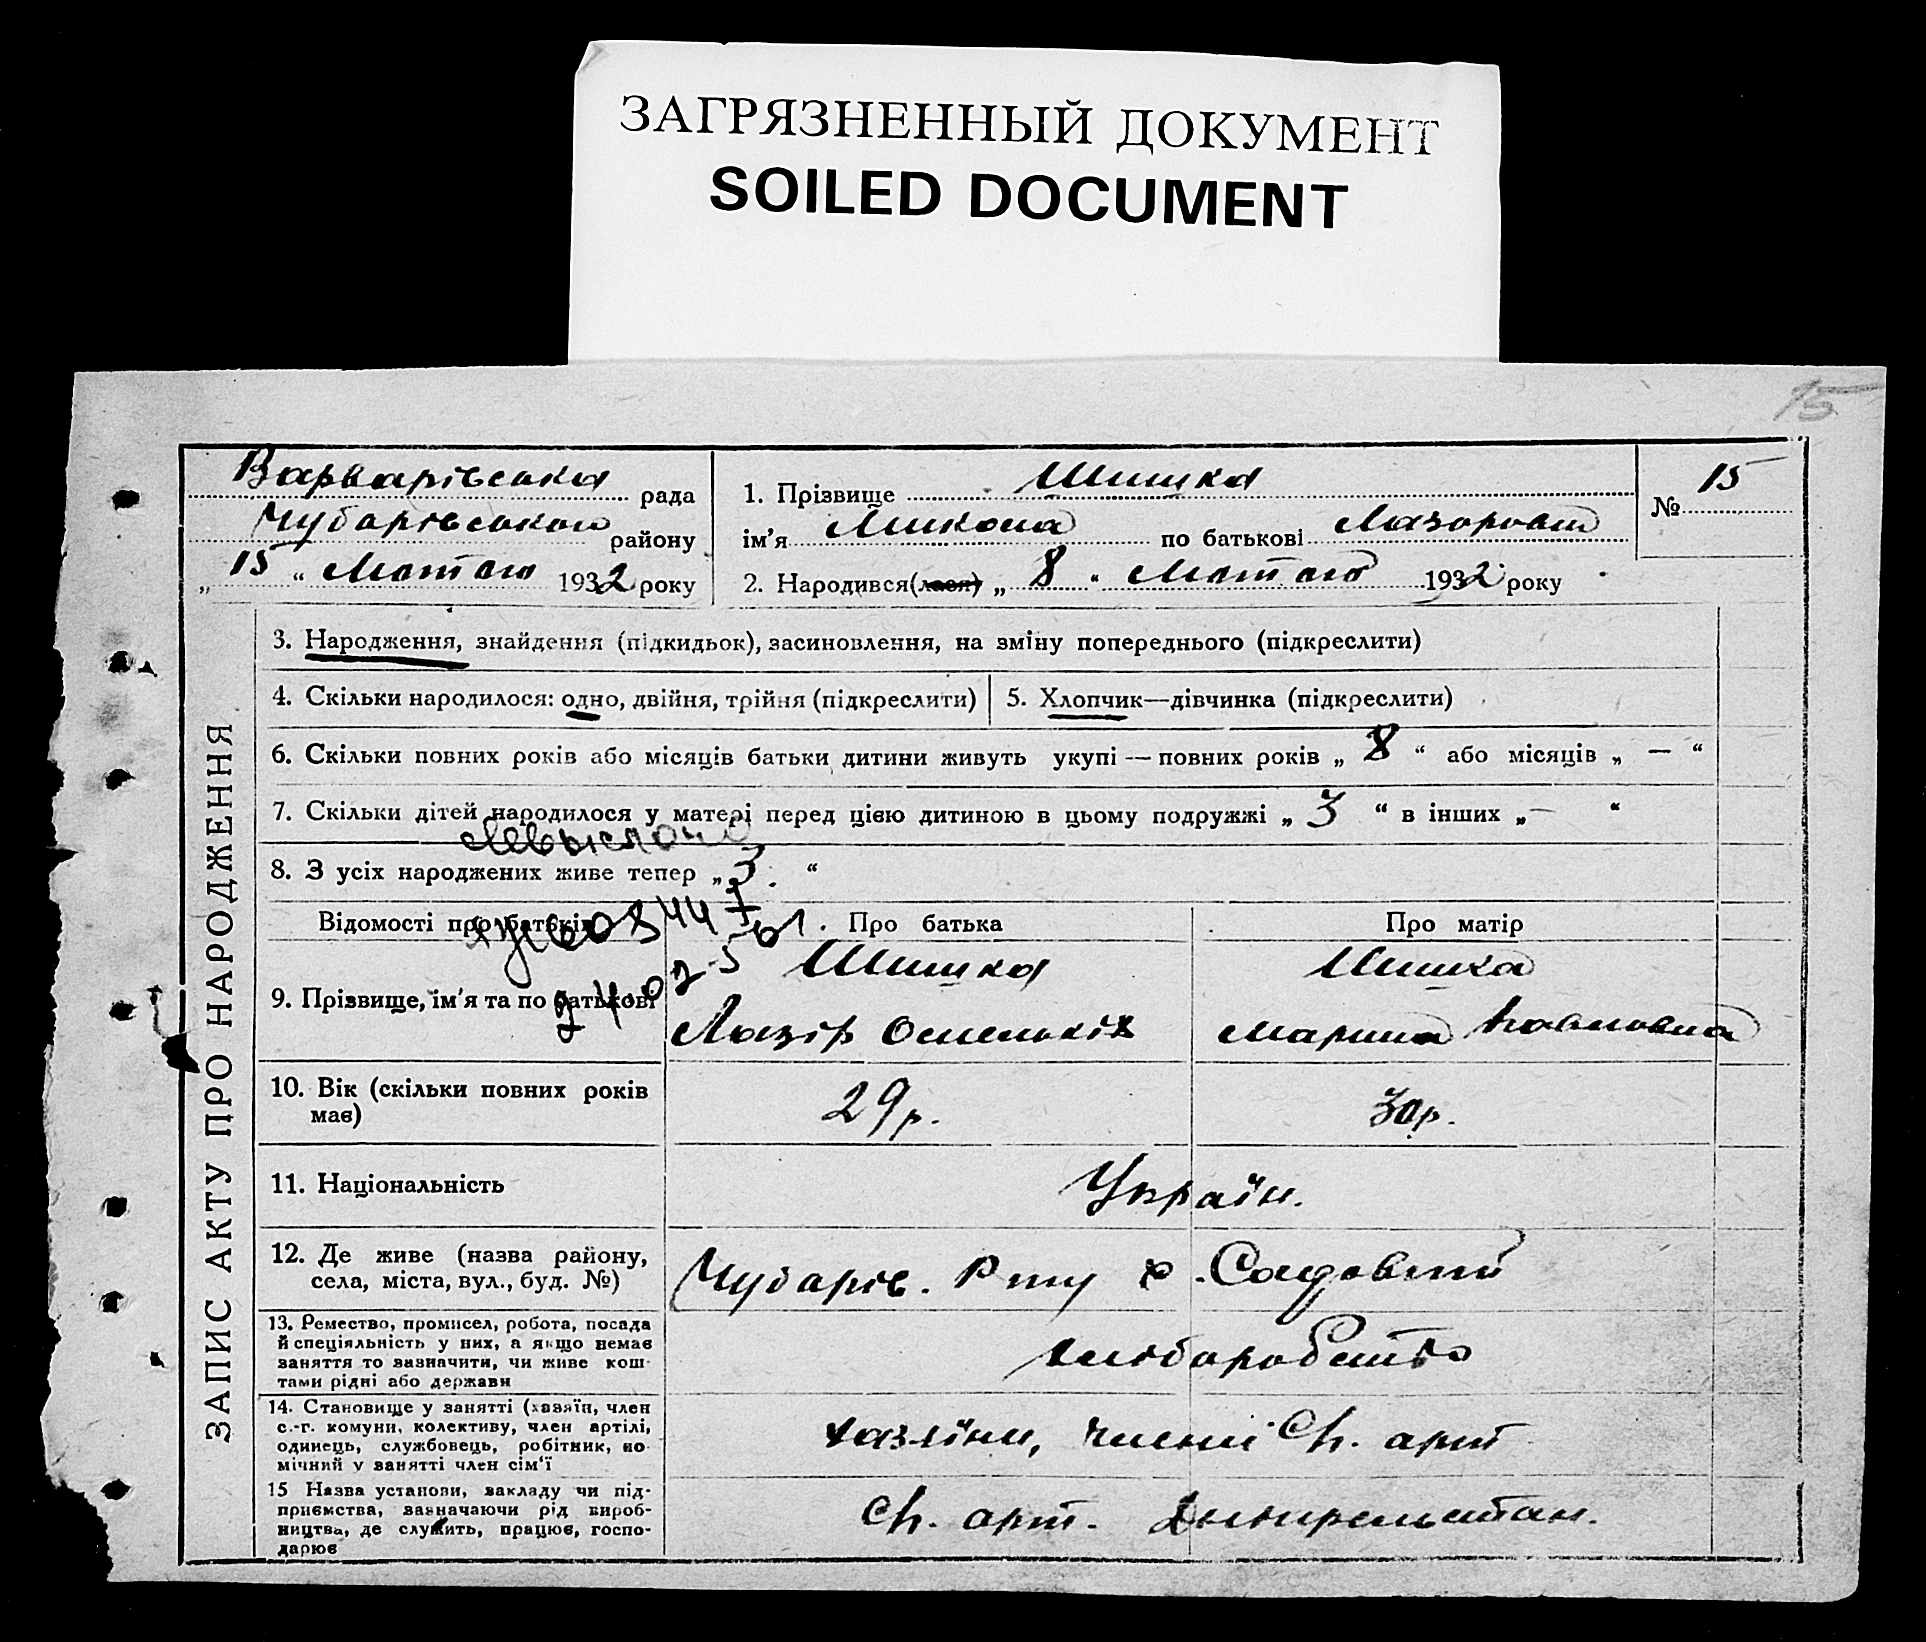 ЗАГРЯЗНЕННЫЙ ДОКУМЕНТ
SOILED DOCUMENT
15
Варварівська рада
Чубарівського району
„ 15 “ Лютого 1932 року
1. Прізвище Шишка
ім'я Микола по батькові Лазорович
2. Народився(лася) „ 8 “ Лютого 1932 року
№ 15
ЗАПИС АКТУ ПРО НАРОДЖЕННЯ
3. Народження, знайдення (підкидьок), засиновлення, на зміну попереднього (підкреслити)
4. Скільки народилося: одно, двійня, трійня (підкреслити)
5. Хлопчик—дівчинка (підкреслити)
6. Скільки повних років або місяців батьки дитини живуть укупі — повних років „ 8 “ або місяців „ — “
7. Скільки дітей народилося у матері перед цією дитиною в цьому подружжі „ 3 “ в інших „ — “
8. З усіх народжених живе тепер „ 3 “
Відомості про батьків
Про батька
Про матір
9. Прізвище, ім'я та по батькові
Шишка
Лазір Омельків
Шишка
Марина Павловна
10. Вік (скільки повних років має)
29 р.
30 р.
11. Національність
Україн.
12. Де живе (назва району, села, міста, вул., буд. №)
Чубарів. Р-ну х. Садовий
13. Ремество, промисел, робота, посада й спеціяльність у них, а якщо немає заняття то зазначити, чи живе коштами рідні або держави
хліборобство
14. Становище у занятті (хазяїн, член с.-г. комуни, колективу, член артілі, одинець, службовець, робітник, помічний у занятті член сім'ї
хазяїни, члени сг. арт
15 Назва установи, закладу чи підприємства, зазначаючи рід виробництва, де служить, працює, господарює
сг. арт. Дніпрельстан.